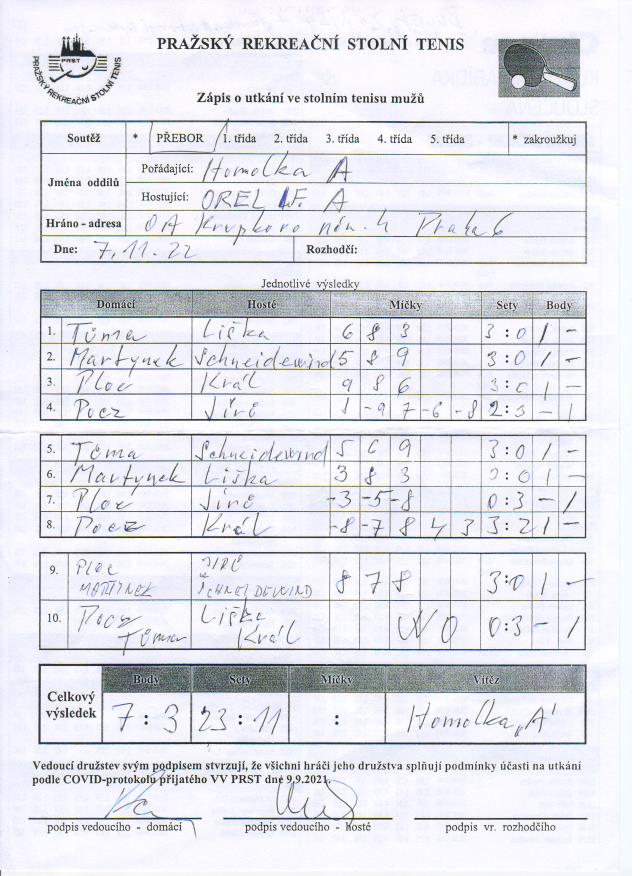 PRAŽSKÝ REKREAČNÍ STOLNÍ TENIS
PRST
PRAŽSKÝ REKREAČNÍ STOLNÍ TENIS
Zápis o utkání ve stolním tenisu mužů
Soutěž * PŘEBOR 1. třída 2. třída 3. třída 4. třída 5. třída * zakroužkuj
Jména oddílů
Pořádající: Homolka A
Hostující: OREL A
Hráno - adresa OA Krupkovo nám. 4 Praha 6
Dne: 7.11.22 Rozhodčí:
Jednotlivé výsledky
Domácí Hosté Míčky Sety Body
1. Tůma Liška 6 8 3 3:0 1 -
2. Martynek Schneidewind 5 8 9 3:0 1 -
3. Ploc Král 9 8 6 3:0 1 -
4. Pocz Jírů -9 7 -6 -8 2:3 - 1
5. Tůma Schneidewind 5 6 9 3:0 1 -
6. Martynek Liška 3 8 3 3:0 1 -
7. Ploc Jírů -3 -5 -8 0:3 - 1
8. Pocz Král -8 -7 8 4 3 3:2 1 -
9. PLOC JÍRŮ 8 7 8 3:0 1 -
MARTYNEK SCHNEIDEWIND
10. Pocz Liška WO 0:3 - 1
Tůma Král
Celkový výsledek
Body Sety Míčky Vítěz
7:3 23:11 : Homolka „A“
Vedoucí družstev svým podpisem stvrzují, že všichni hráči jeho družstva splňují podmínky účasti na utkání
podle COVID-protokolu přijatého VV PRST dne 9.9.2021.
podpis vedoucího - domácí podpis vedoucího - hosté podpis vr. rozhodčího